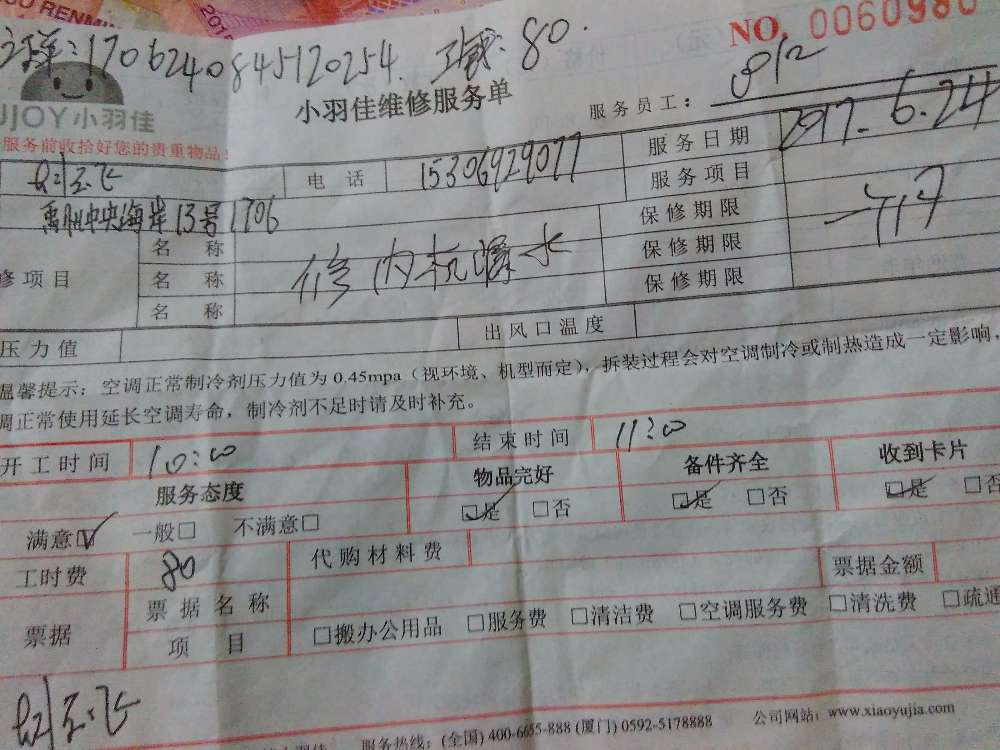 NO. 0060980
17062408451 20254. 80.
小羽佳维修服务单
服务员工: 812
UJOY 小羽佳
服务前收拾好您的贵重物品
电话 15306929077 服务日期 2017.6.24
服务项目
禹洲中央海岸13号1706
保修期限 一个月
修项目 名称 修内机漏水
名称 保修期限
名称 保修期限
名称
压力值 出风口温度
温馨提示: 空调正常制冷剂压力值为 0.45mpa (视环境、机型而定), 拆装过程会对空调制冷或制热造成一定影响,
调正常使用延长空调寿命, 制冷剂不足时请及时补充。
开工时间 10:00 结束时间 11:00
服务态度 物品完好 备件齐全 收到卡片
满意☑ 一般□ 不满意□ ☑是 □否 ☑是 □否 ☑是 □否
工时费 80 代购材料费
票据金额
票据 票据名称
项目 □搬办公用品 □服务费 □清洁费 □空调服务费 □清洗费 □疏通
服务热线: (全国) 400-6655-888 (厦门) 0592-5178888 公司网站: www.xiaoyujia.com